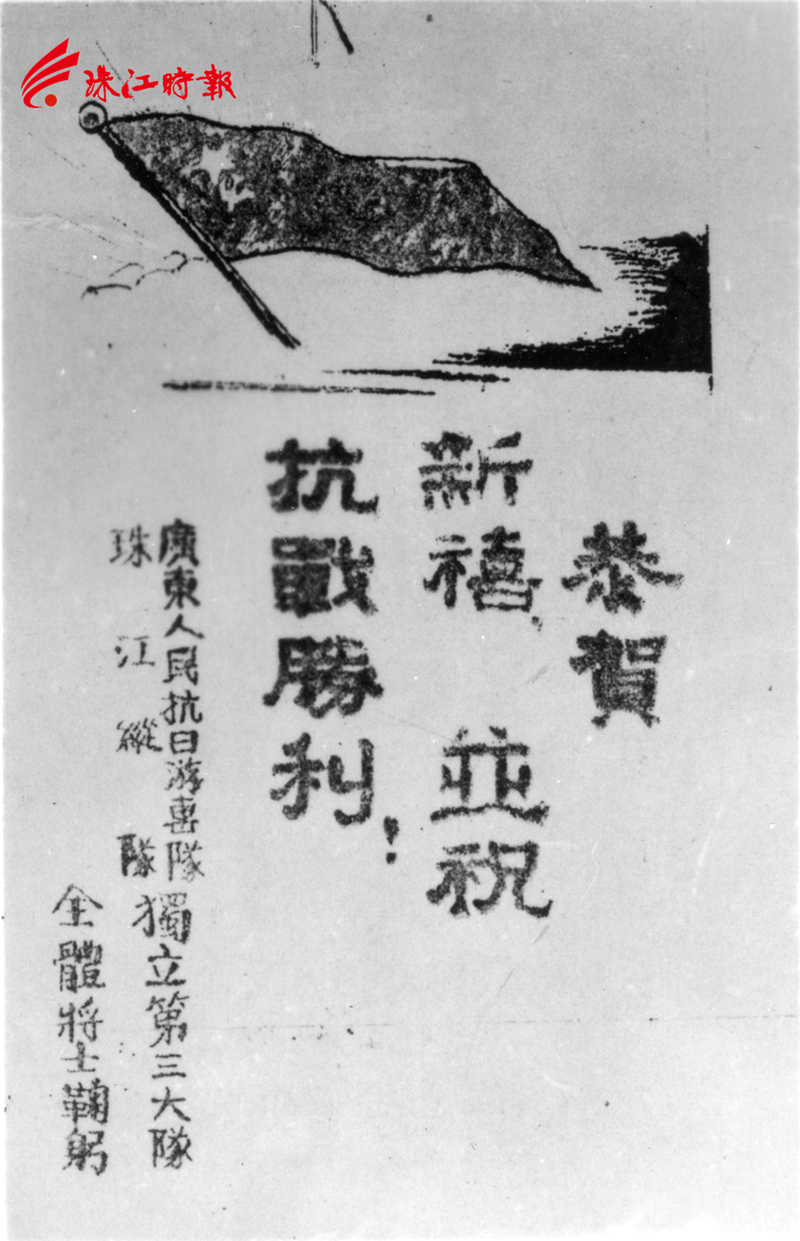 珠江時報
恭賀
新禧 並祝
抗戰勝利！
廣東人民抗日游擊隊
珠江縱隊
獨立第三大隊
全體將士鞠躬